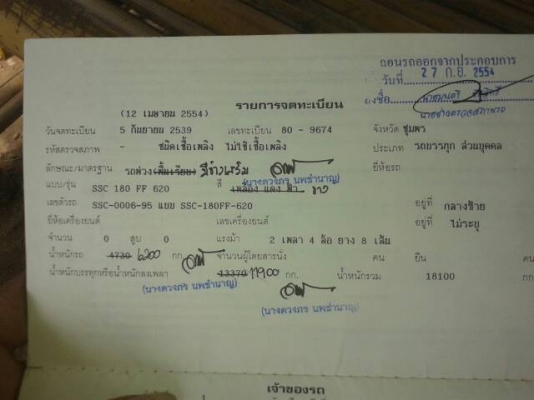 ถอนรถออกจากประกอบการ
วันที่ 27 ก.ย. 2554
ลงชื่อ
(12 เมษายน 2554) รายการจดทะเบียน
วันจดทะเบียน 5 กันยายน 2539 เลขทะเบียน 80 - 9674 จังหวัด ชุมพร
รหัสตรวจสภาพ - ชนิดเชื้อเพลิง ไม่ใช้เชื้อเพลิง ประเภท รถบรรทุก ส่วนบุคคล
ลักษณะ/มาตรฐาน รถพ่วง(พื้นเรียบ) มีข้างเสริม (นางดวงภร นพชำนาญ) ยี่ห้อรถ
แบบ/รุ่น SSC 180 FF 620 สี เหลือง แดง ฟ้า ขาว
เลขตัวรถ SSC-0006-95 แบบ SSC-180FF-620 อยู่ที่ กลางซ้าย
ยี่ห้อเครื่องยนต์ เลขเครื่องยนต์ อยู่ที่ ไม่ระบุ
จำนวน 0 สูบ 0 แรงม้า 2 เพลา 4 ล้อ ยาง 8 เส้น
น้ำหนักรถ 4730 6200 กก. จำนวนผู้โดยสารนั่ง คน ยืน คน
น้ำหนักบรรทุกหรือน้ำหนักลงเพลา 13370 11900 กก. น้ำหนักรวม 18100 กก.
(นางดวงภร นพชำนาญ)
(นางดวงภร นพชำนาญ)
เจ้าของรถ